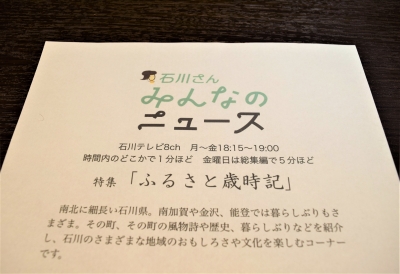 石川さん
みんなの
ニュース
石川テレビ8ch 月～金18:15～19:00
時間内のどこかで1分ほど 金曜日は総集編で5分ほど
特集 「ふるさと歳時記」
南北に細長い石川県。南加賀や金沢、能登では暮らしぶりもさ
まざま。その町、その町の風物詩や歴史、暮らしぶりなどを紹介
し、石川のさまざまな地域のおもしろさや文化を楽しむコーナー
です。